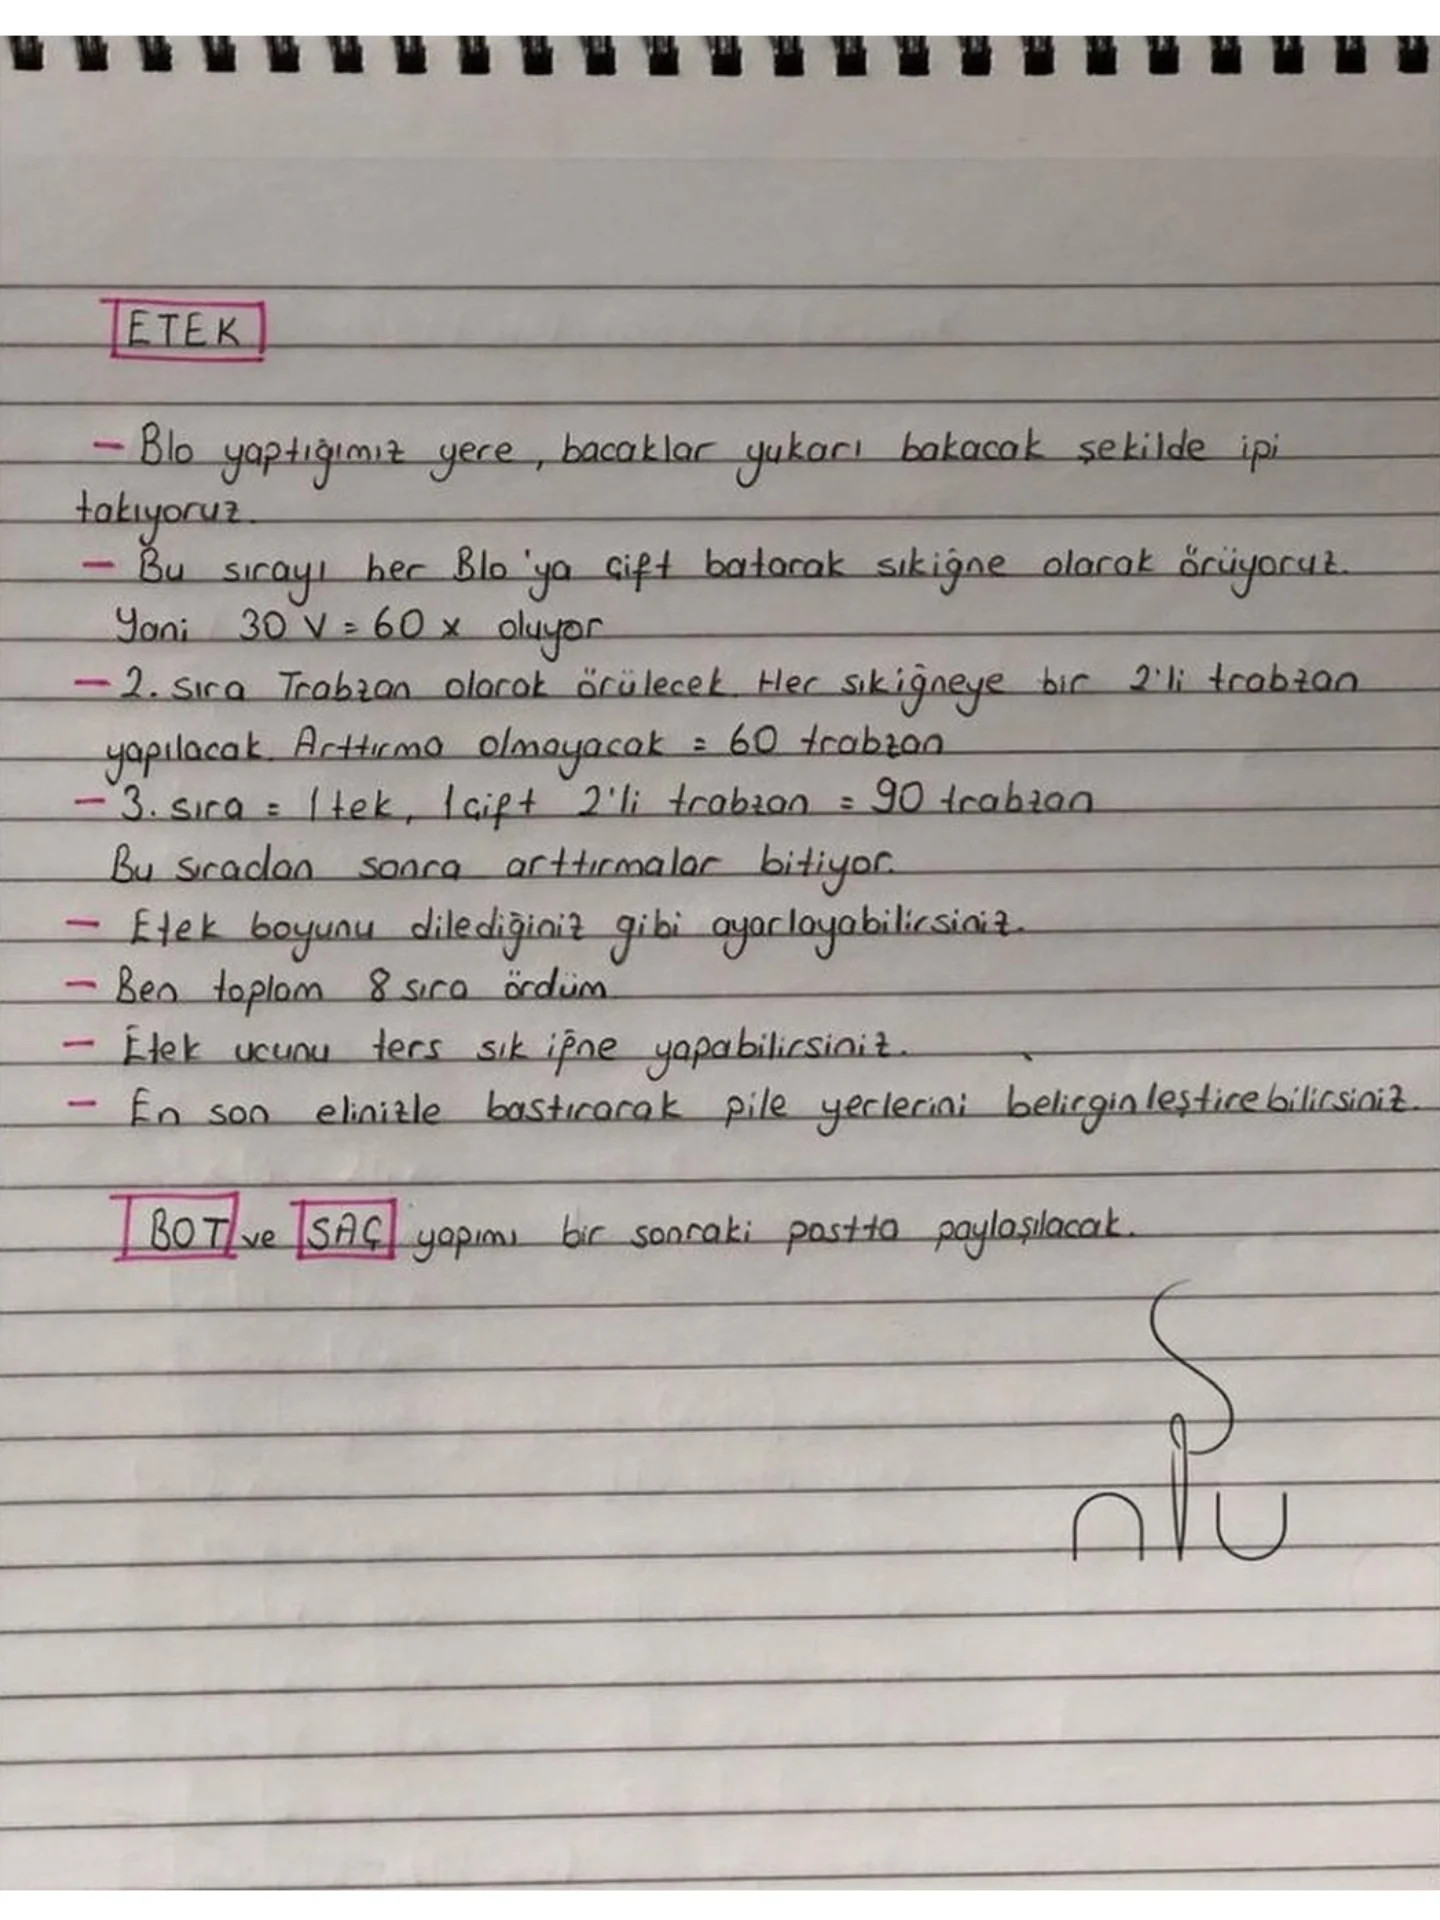 ETEK
- Blo yaptığımız yere, bacaklar yukarı bakacak şekilde ipi
takıyoruz.
- Bu sırayı her Blo'ya çift batarak sıkiğne olarak örüyoruz.
Yani 30 V = 60 x oluyor
- 2. sıra Trabzan olarak örülecek. Her sıkiğneye bir 2'li trabzan
yapılacak. Arttırma olmayacak = 60 trabzan
- 3. sıra = 1 tek, 1 çift 2'li trabzan = 90 trabzan
Bu sıradan sonra arttırmalar bitiyor.
- Etek boyunu dilediğiniz gibi ayarlayabilirsiniz.
- Ben toplam 8 sıra ördüm
- Etek ucunu ters sık iğne yapabilirsiniz.
- En son elinizle bastırarak pile yerlerini belirginleştirebilirsiniz.
BOT ve SAÇ yapımı bir sonraki postta paylaşılacak.